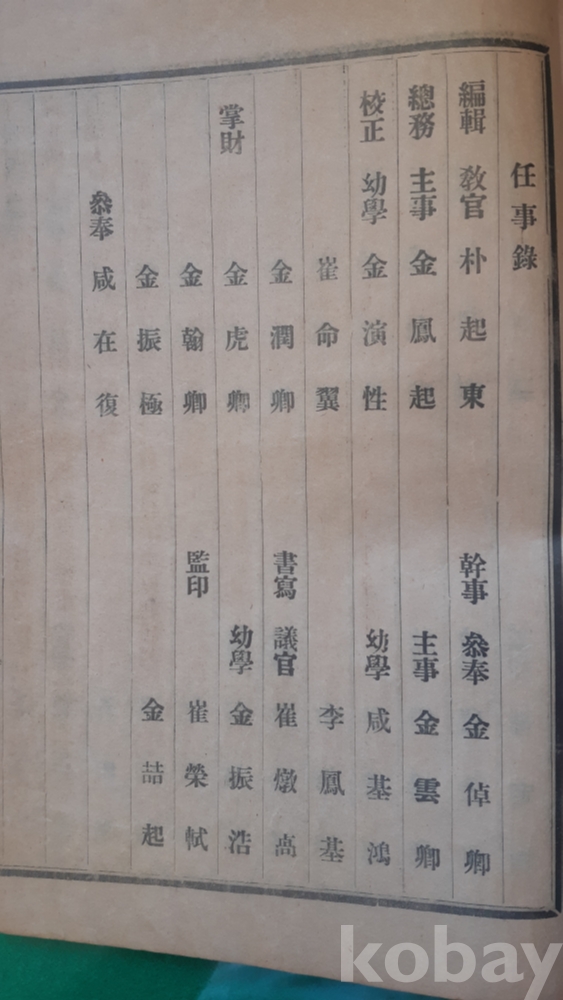 任事錄
編輯 敎官 朴起東 幹事 叅奉 金倬卿
總務 主事 金鳳起 主事 金雲卿
校正 幼學 金演性 幼學 咸基鴻
崔命翼 李鳳基
金潤卿 書寫 議官 崔燉高
掌財 金虎卿 幼學 金振浩
金翰卿 監印 崔榮軾
金振極 金喆起
叅奉 咸在復
kobay